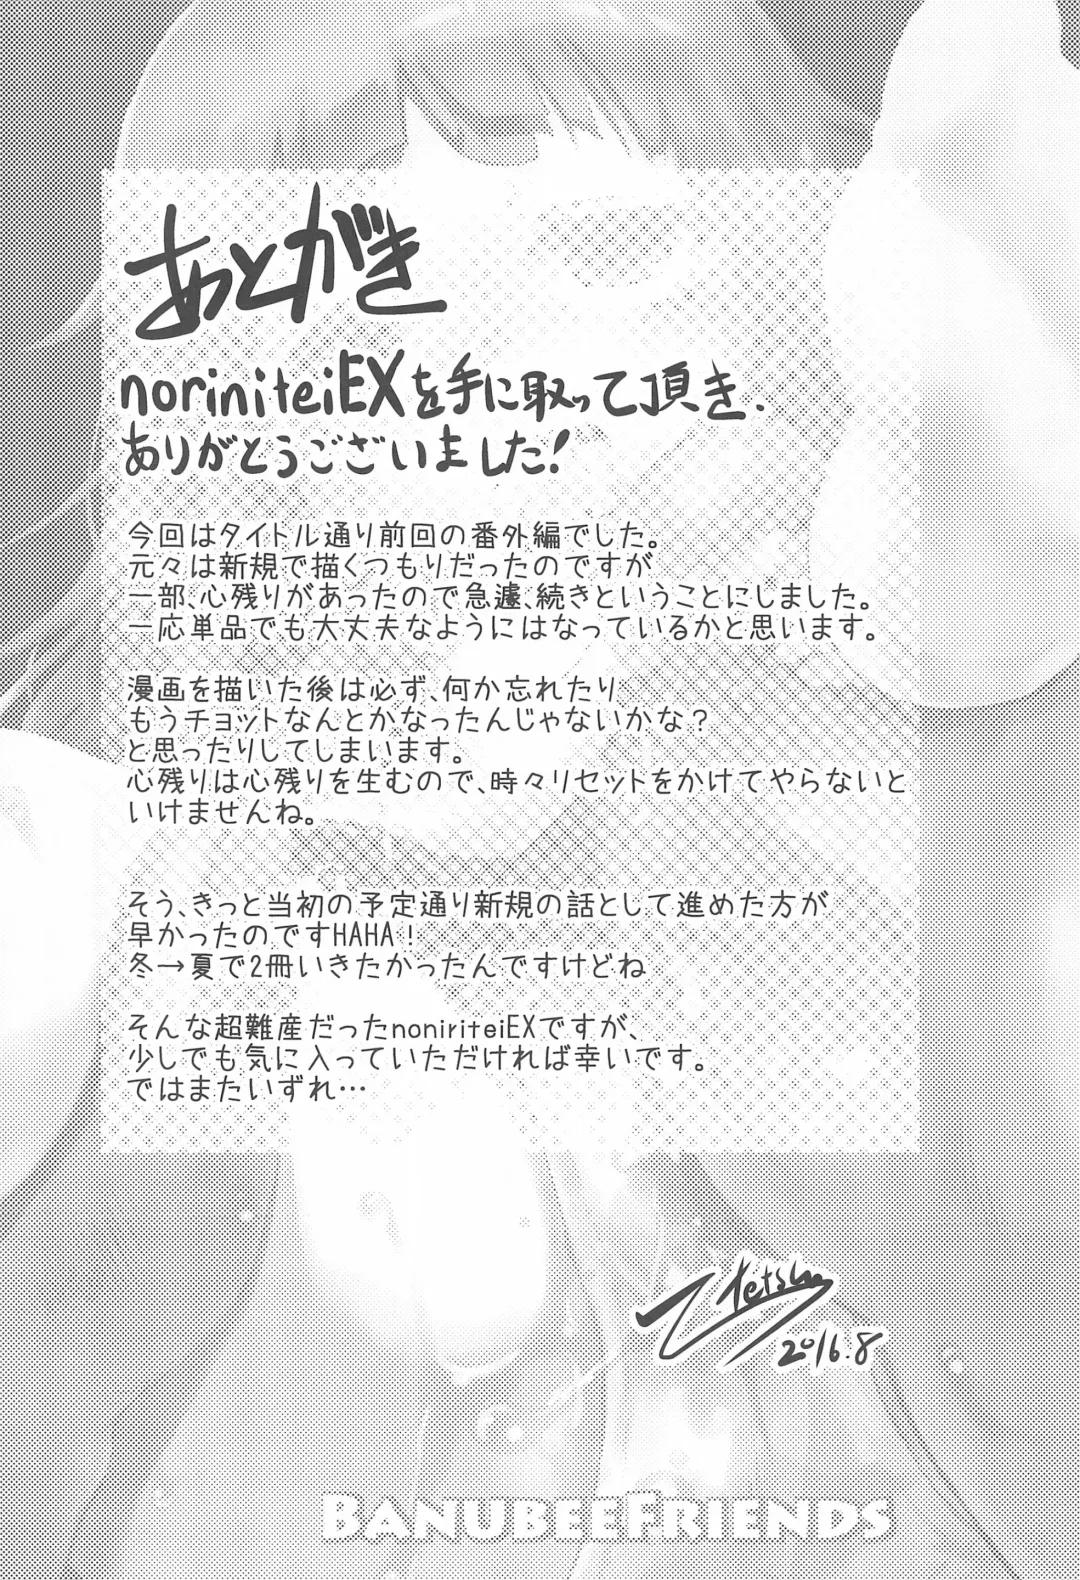 あとがき
noriniteiEXを手に取って頂き、
ありがとうございました!
今回はタイトル通り前回の番外編でした。
元々は新規で描くつもりだったのですが
一部、心残りがあったので急遽、続きということにしました。
一応単品でも大丈夫なようにはなっているかと思います。
漫画を描いた後は必ず、何か忘れたり
もうチョットなんとかなったんじゃないかな?
と思ったりしてしまいます。
心残りは心残りを生むので、時々リセットをかけてやらないと
いけませんね。
そう、きっと当初の予定通り新規の話として進めた方が
早かったのですHAHA!
冬→夏で2冊いきたかったんですけどね
そんな超難産だったnoniriteiEXですが、
少しでも気に入っていただければ幸いです。
ではまたいずれ…
tetsu
2016.8
BANUBEEFRIENDS